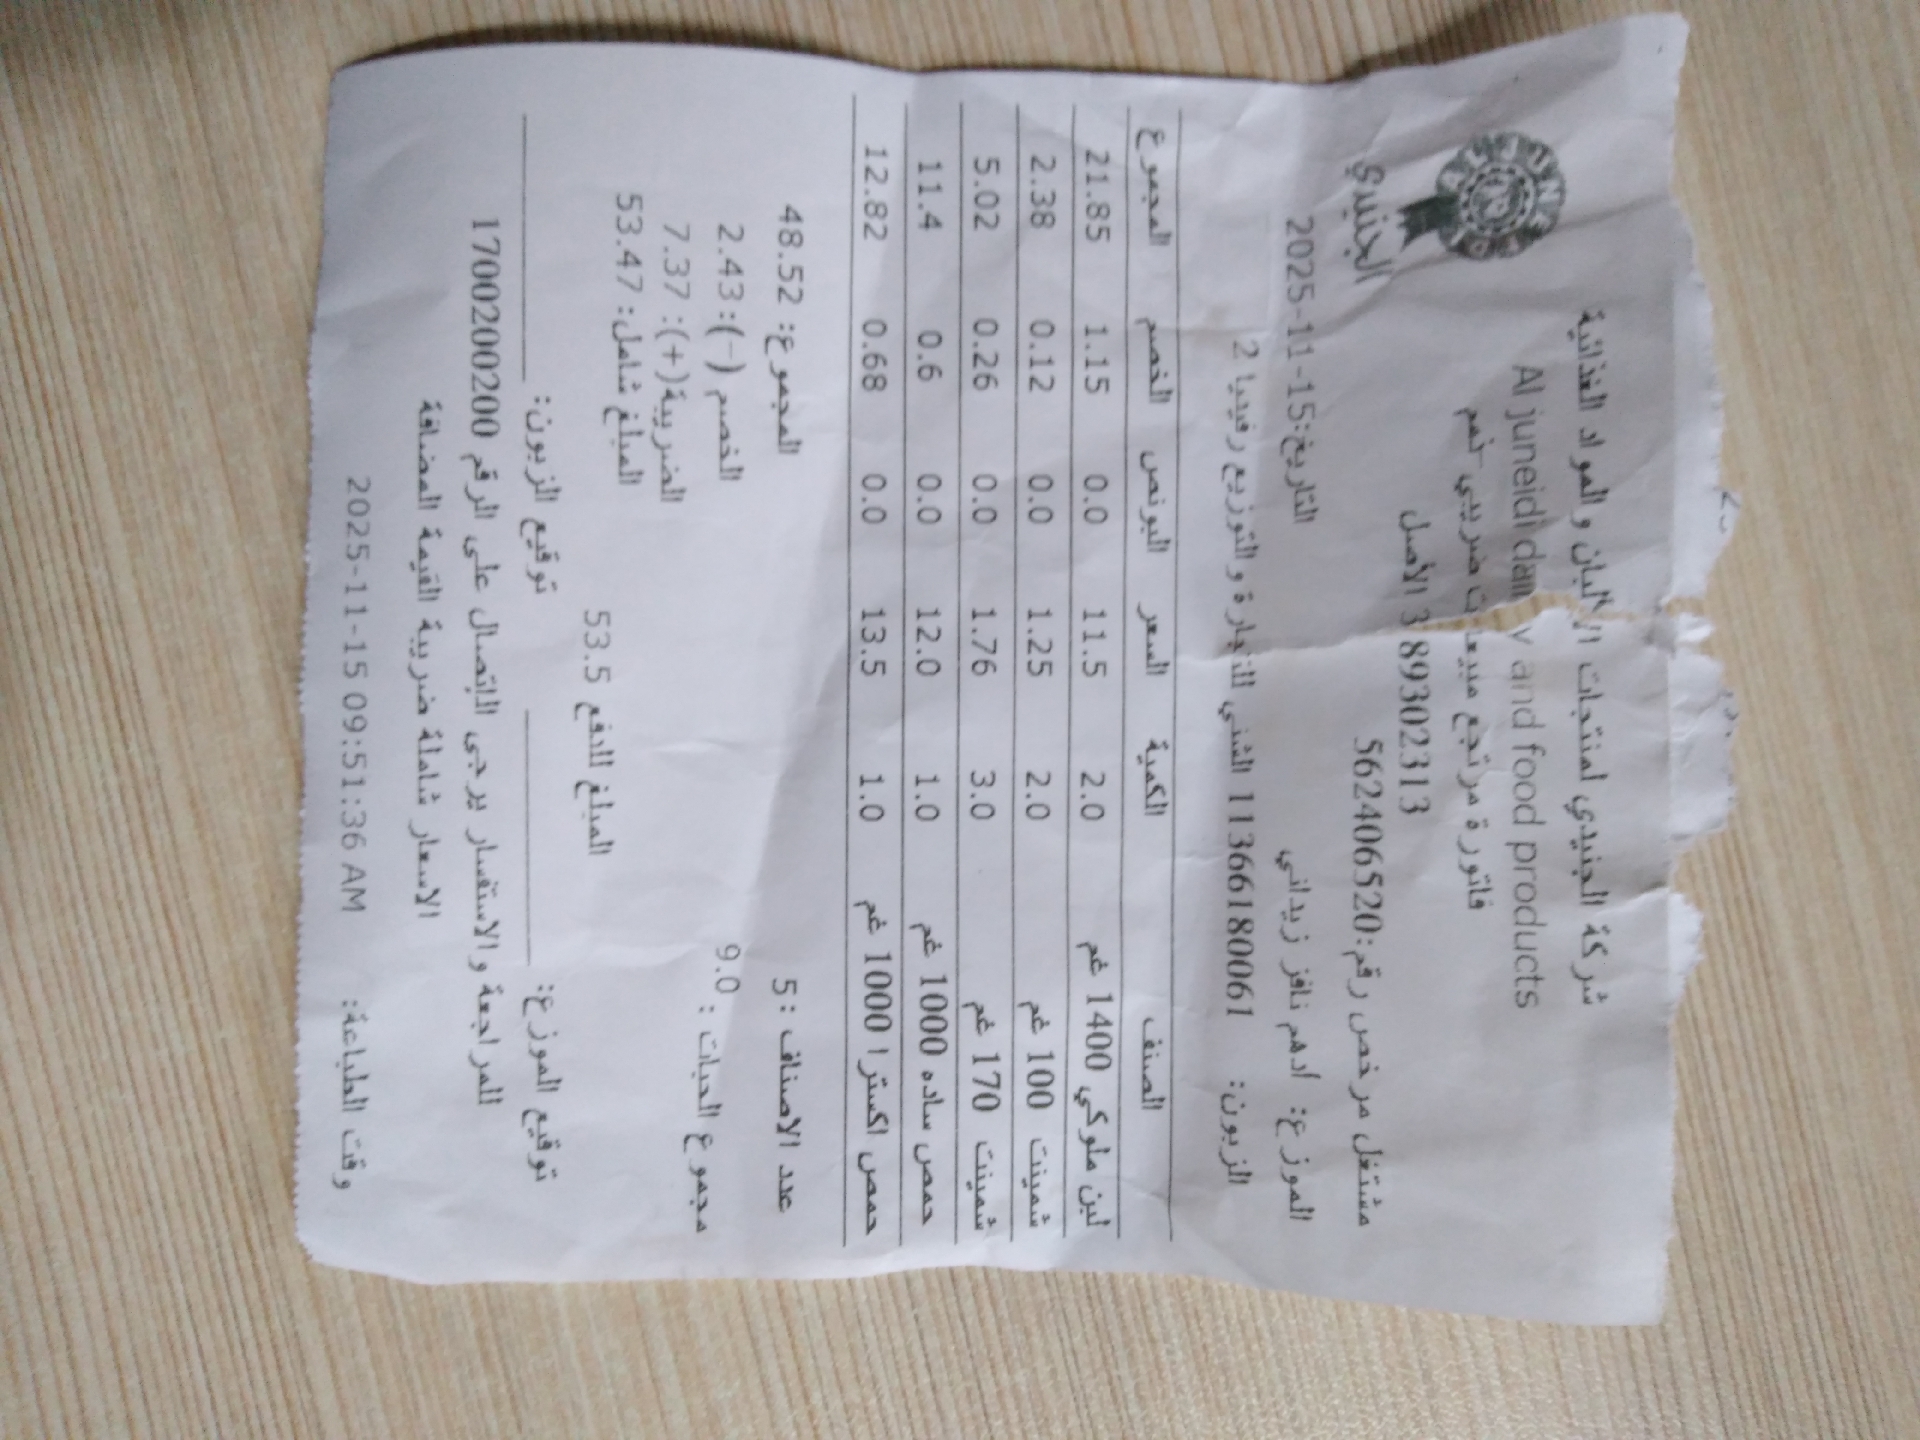 شركة الجنيدي لمنتجات الألبان والمواد الغذائية
Al juneidi dairy and food products
فاتورة مرتجع مبيعات ضريبي
389302313 الأصل
الجنيدي
مشتغل مرخص رقم:562406520
الموزع: أدهم نافز زيداني التاريخ:15-11-2025
الزبون: 11366180061 الشني للتجارة والتوزيع رفيديا 2
الصنف الكمية السعر البونص الخصم المجموع
لبن ملوكي 1400 غم 2.0 11.5 0.0 1.15 21.85
شمينت 100 غم 2.0 1.25 0.0 0.12 2.38
شمينت 170 غم 3.0 1.76 0.0 0.26 5.02
حمص ساده 1000 غم 1.0 12.0 0.0 0.6 11.4
حمص اكسترا 1000 غم 1.0 13.5 0.0 0.68 12.82
عدد الاصناف : 5 المجموع: 48.52
مجموع الحبات : 9.0 الخصم (-): 2.43
الضريبة(+): 7.37
المبلغ شامل: 53.47
المبلغ للدفع 53.5
توقيع الموزع: توقيع الزبون:
للمراجعة والاستفسار يرجى الاتصال على الرقم 1700200200
الاسعار شاملة ضريبة القيمة المضافة
وقت الطباعة: 2025-11-15 09:51:36 AM